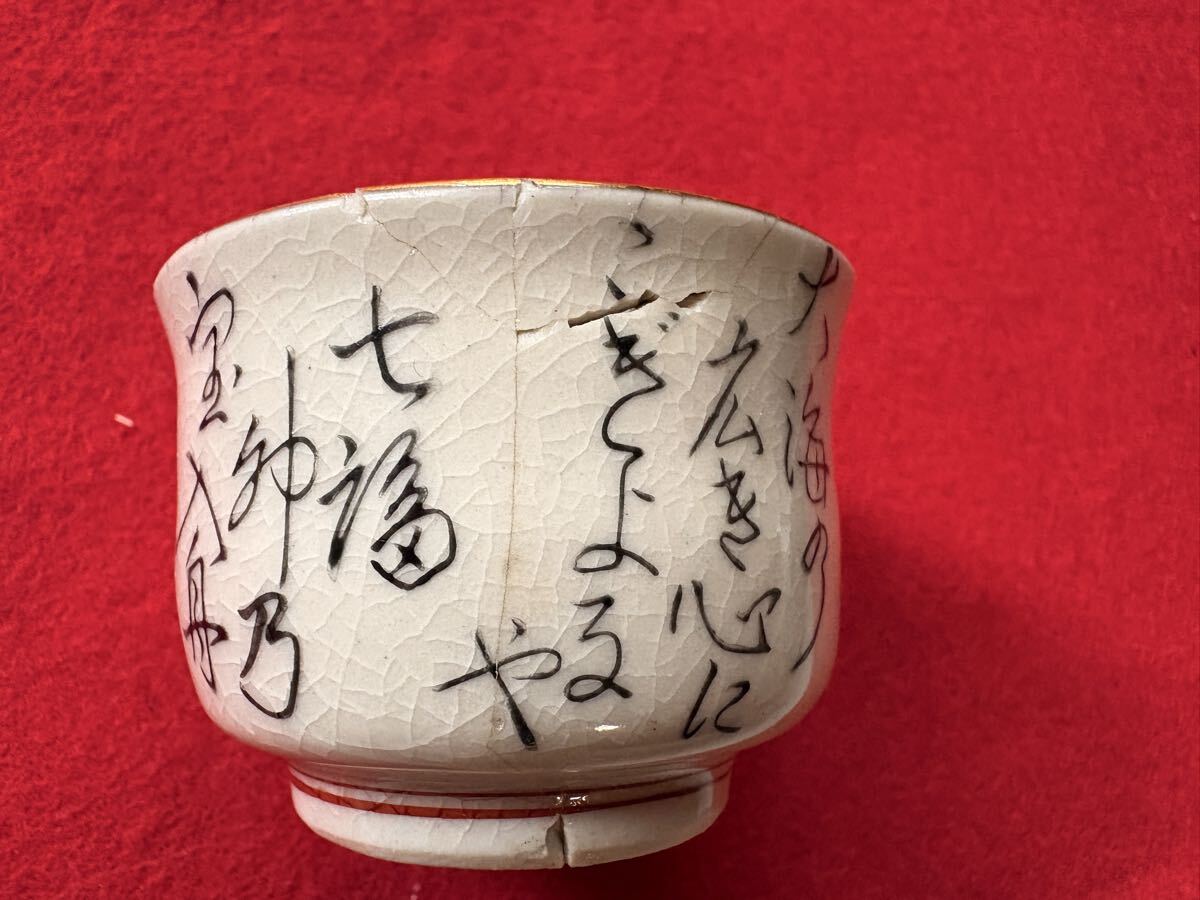 大海の
広き心に
こぎよる
や
七福
神乃
宝入舟